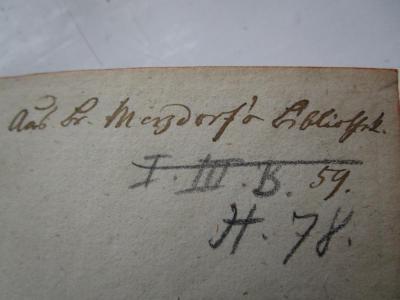 Aus Br. Merzdorf's Bibliothek.
I. III. B. 59.
H. 78.